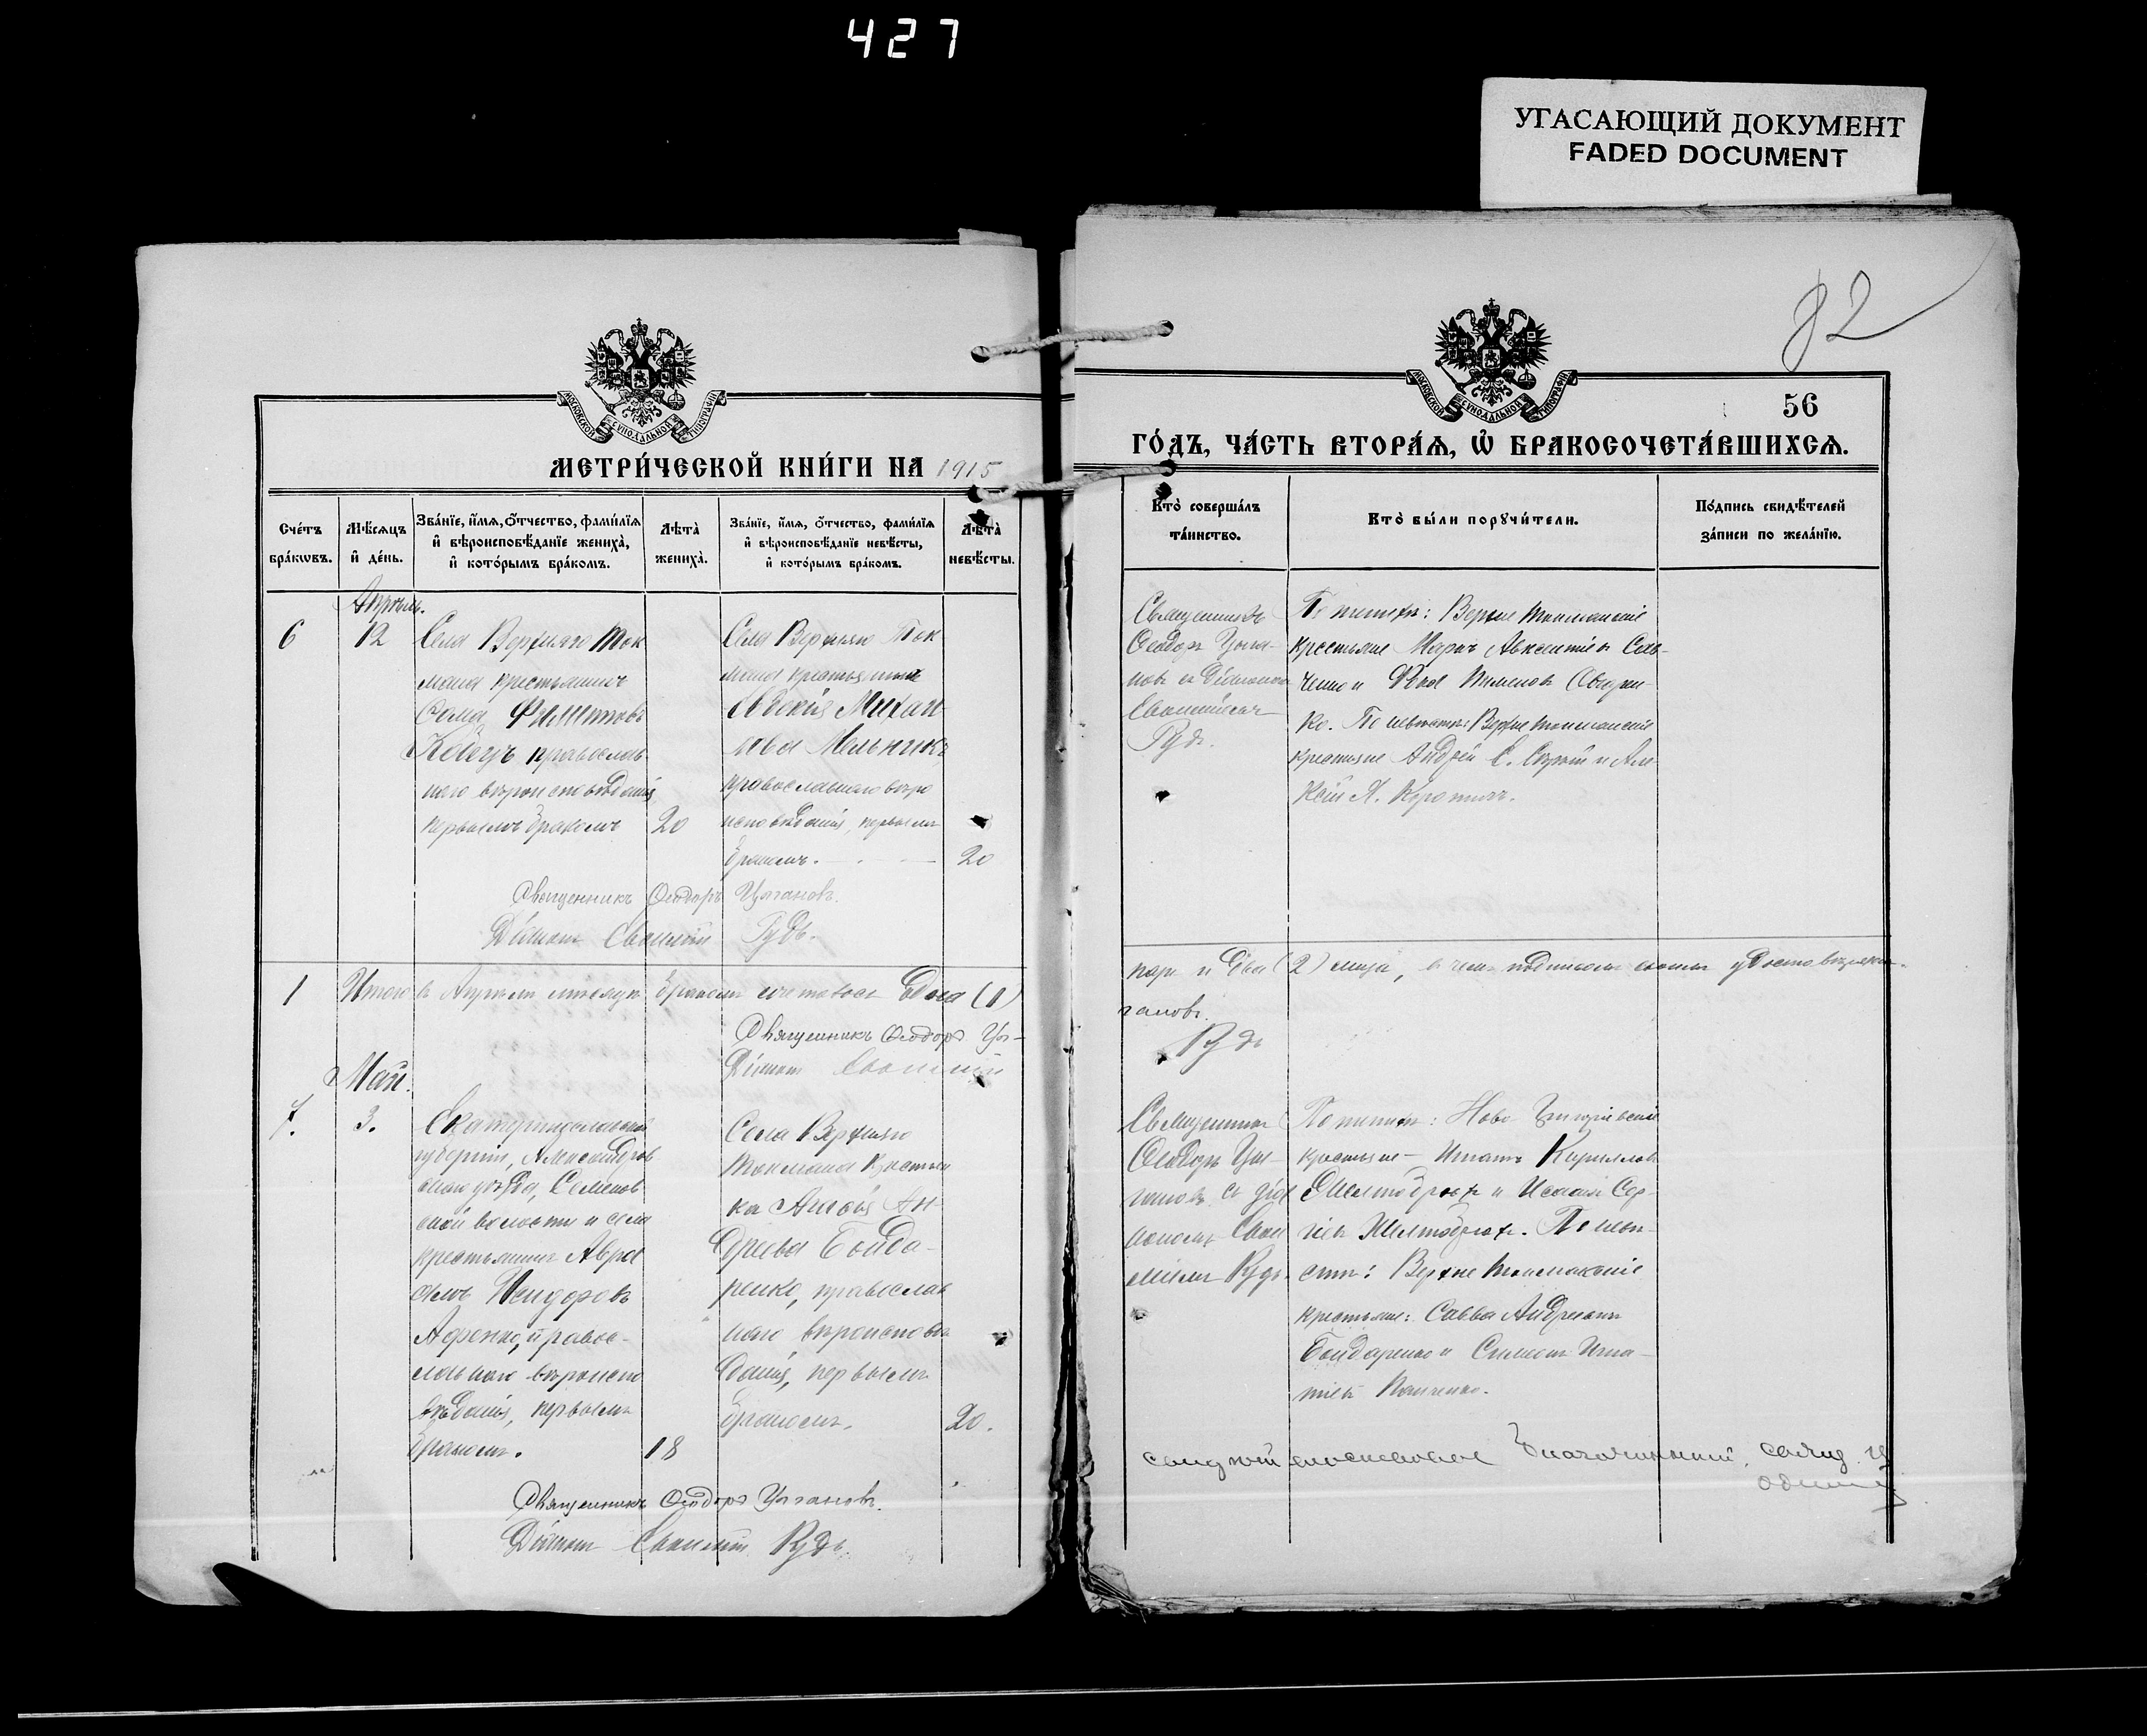 427
УГАСАЮЩИЙ ДОКУМЕНТ
FADED DOCUMENT
82
56
МОСКОВСКОЙ СѴНОДАЛЬНОЙ ТИПОГРАФІИ
МОСКОВСКОЙ СѴНОДАЛЬНОЙ ТИПОГРАФІИ
МЕТРИ́ЧЕСКОЙ КНИ́ГИ НА 1915
ГО́ДЪ, ЧА́СТЬ ВТОРА́Я, Ѽ БРАКОСОЧЕТА́ВШИХСЯ.
Сче́тъ бра́кωвъ.
Мѣ́сяцъ и҆ де́нь.
Зва́нїе, и҆́мя, ѻ҆́тчество, фами́лїя и҆ вѣроисповѣ́данїе жениха̀, и҆ кото́рымъ бра́комъ.
Лѣта̀ жениха̀.
Зва́нїе, и҆́мя, ѻ҆́тчество, фами́лїя и҆ вѣроисповѣ́данїе невѣ́сты, и҆ кото́рымъ бра́комъ.
Лѣта̀ невѣ́сты.
Кто̀ соверша́лъ та́инство.
Кто̀ бы́ли порꙋчи́тели.
По́дпись свидѣ́телей за́писи по жела́нїю.
Апрѣль.
6
12
Села Верхняго Ток
мака крестьянинъ
Ѳома Филипповъ
православ
наго вѣроисповѣданія
первымъ бракомъ
20
Села Верхняго Ток
мака крестьянка
Евдокія Михаи
лова Мельникъ
православнаго вѣро
исповѣданія, первымъ
бракомъ.
20
Священникъ
Ѳеодоръ Цыга-
новъ съ діакономъ
Рудь.
По женихѣ: Верхне Токмакскіе
крестьяне Маркъ Авксентіевъ Сав-
ченко и
ко. По невѣстѣ: Верхне Токмакскіе
крестьяне Андрей С. и Але
ксѣй
Священникъ Ѳеодоръ Цыгановъ.
Діаконъ Рудь.
1
Итого въ Апрѣлѣ мѣсяцѣ браковъ одна (1)
пара и два (2) лица, въ чемъ подписомъ своимъ удостовѣряемъ.
Священникъ Ѳеодоръ Цы-
гановъ.
Діаконъ
Рудь
Май.
7.
3.
Екатеринославской
губерніи, Александров
скаго уѣзда, Семенов
ской волости и села
крестьянинъ Авра
амъ Исидоровъ
правос-
лавнаго вѣроиспо
вѣданія, первымъ
бракомъ.
18
Села Верхняго
Токмака крестьян
ка Ан-
дреева Бонда-
ренко, православ
наго вѣроисповѣ
данія, первымъ
бракомъ.
20.
Священникъ
Ѳеодоръ Цы-
гановъ съ діа
кономъ
Рудь.
По женихѣ: Ново Григорьевскіе
крестьяне — Игнатъ Кирилловъ
Желтобрюхъ и Исаакъ Сер-
гѣевъ Желтобрюхъ. По невѣ-
стѣ: Верхне Токмакскіе
крестьяне: Савва Андреевъ
Бондаренко и Симеонъ Игна-
тіевъ Панченко.
Священникъ Ѳеодоръ Цыгановъ.
Діаконъ Рудь.